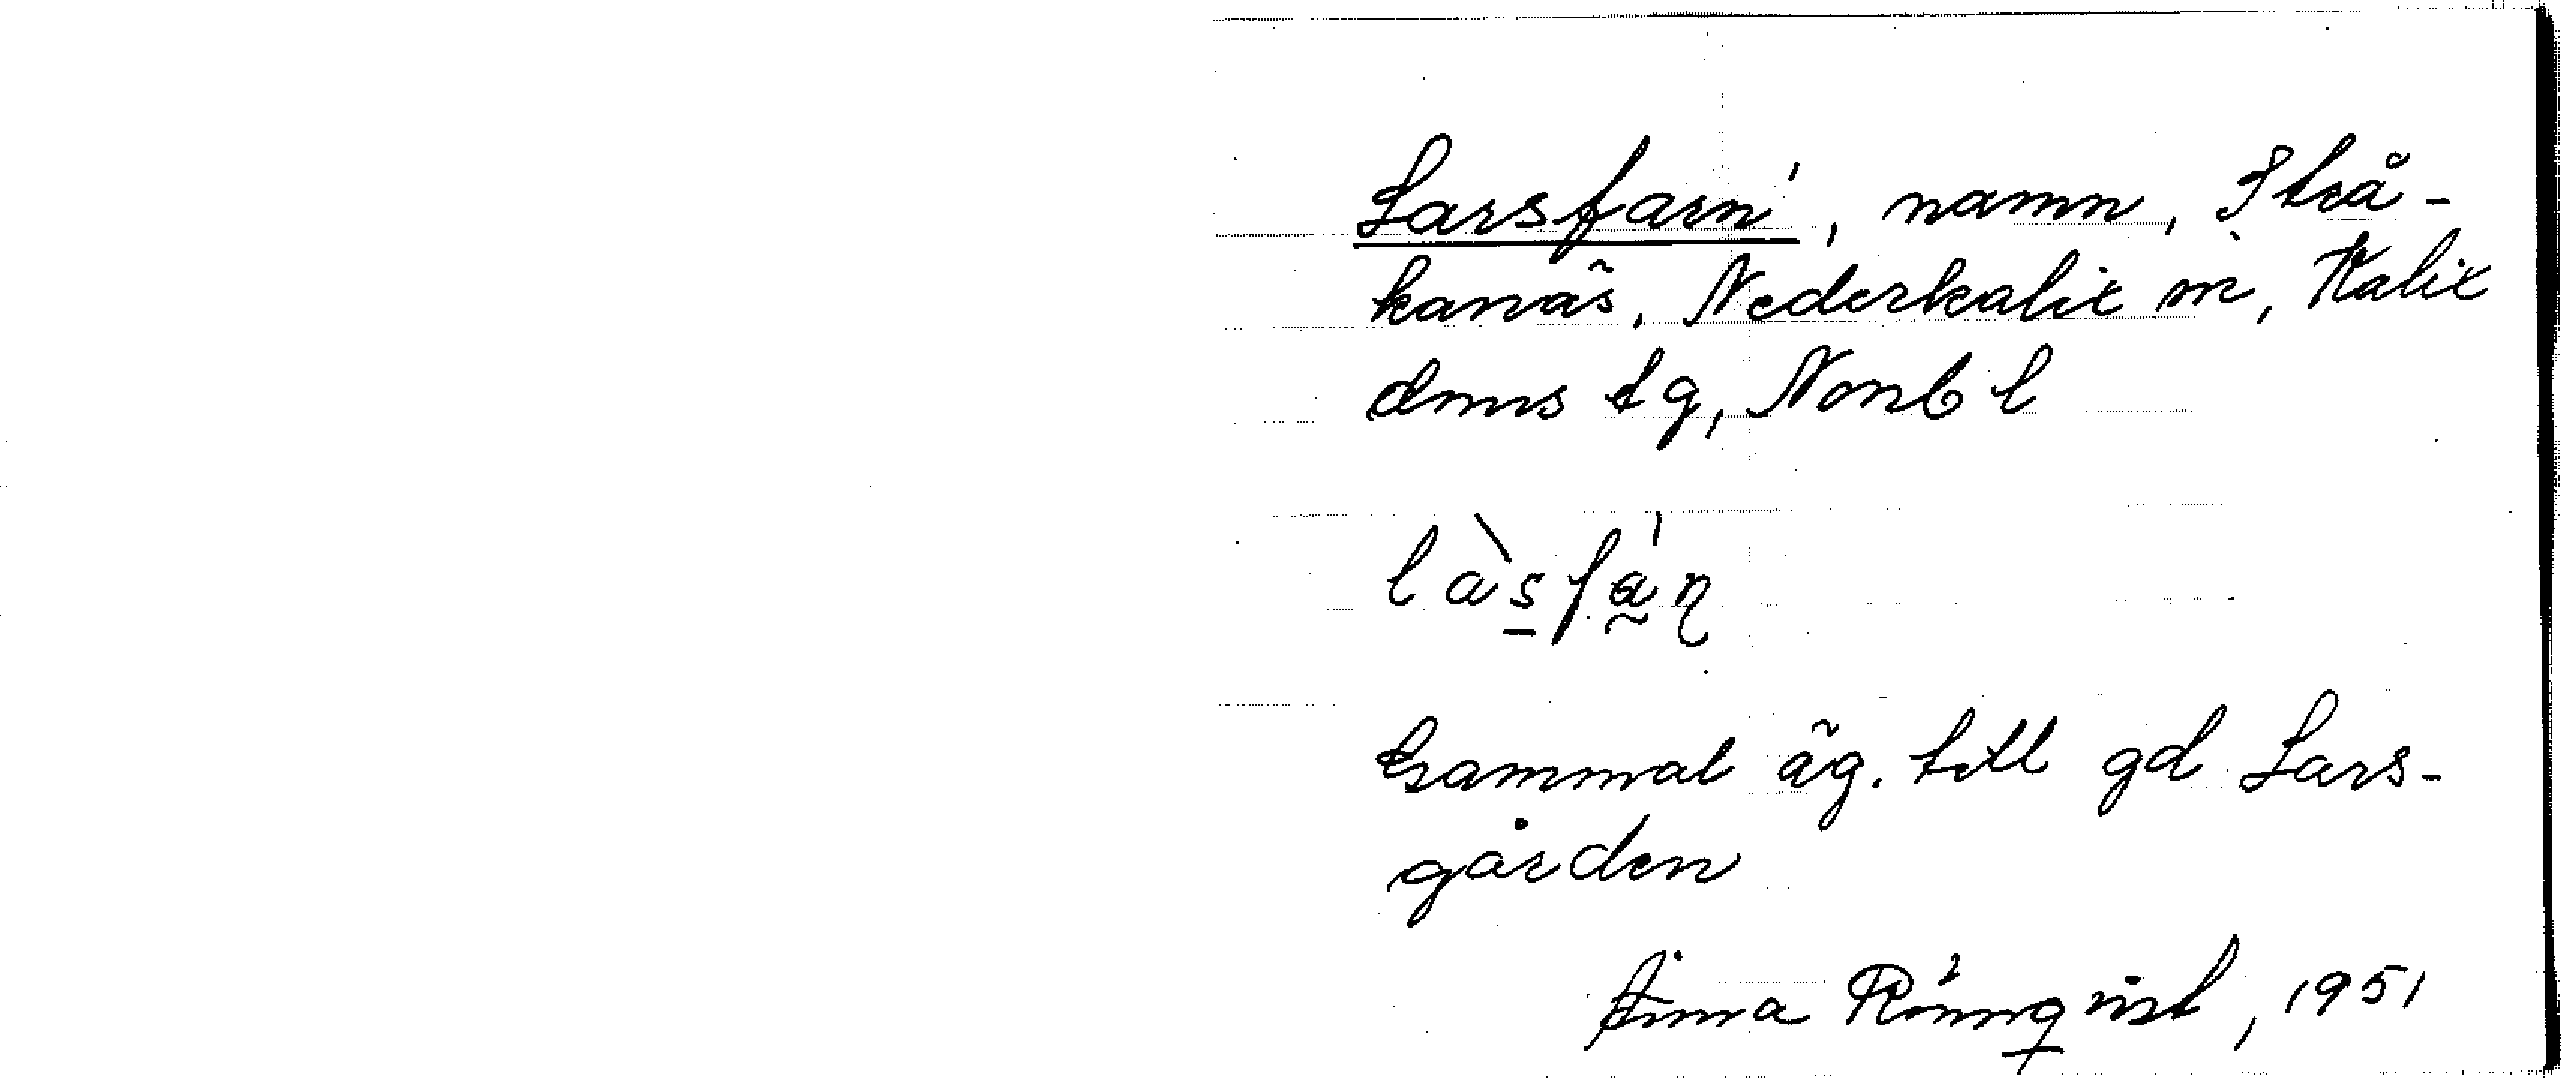 Larsfarn', namn, Strå-
kanäs, Nederkalix sn, Kalix
dms tg, Norrb l
làs̠fà̰ɳ
Gammal äg. till gd Lars-
gården
Anna Rönnqvist, 1951